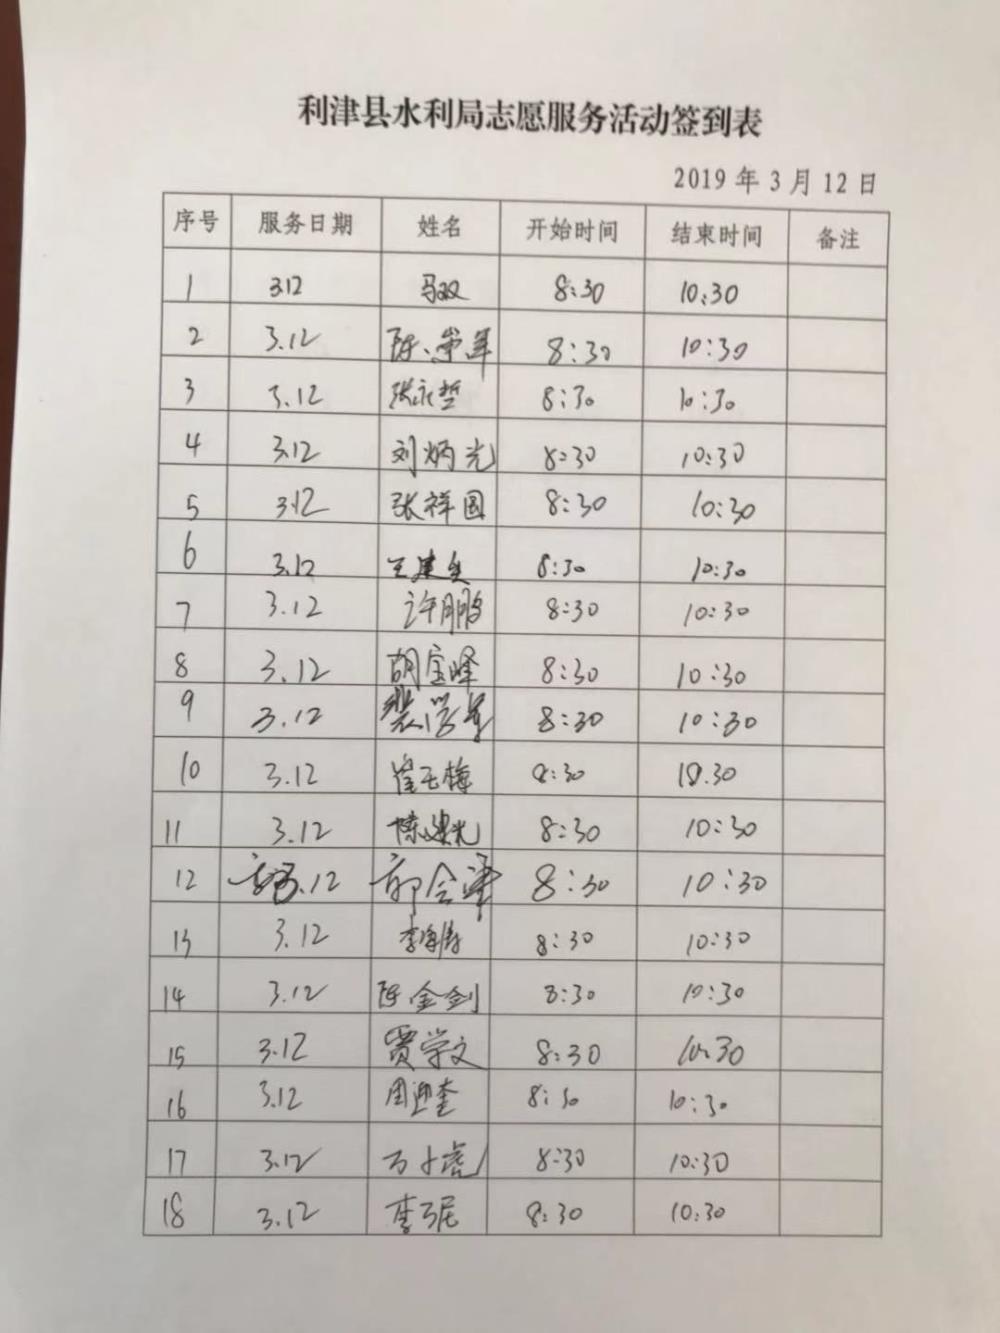 利津县水利局志愿服务活动签到表
2019 年 3 月 12 日
序号 服务日期 姓名 开始时间 结束时间 备注
1 3.12 马双 8:30 10:30
2 3.12 陈 8:30 10:30
3 3.12 张永哲 8:30 10:30
4 3.12 刘炳光 8:30 10:30
5 3.12 张祥国 8:30 10:30
6 3.12 王建 8:30 10:30
7 3.12 许鹏 8:30 10:30
8 3.12 胡宝峰 8:30 10:30
9 3.12 裴学军 8:30 10:30
10 3.12 崔玉梅 8:30 10.30
11 3.12 陈建光 8:30 10:30
12 3.12 郭会津 8:30 10:30
13 3.12 李海涛 8:30 10:30
14 3.12 陈金剑 8:30 10:30
15 3.12 贾学文 8:30 10:30
16 3.12 周迎奎 8:30 10:30
17 3.12 万小虎 8:30 10:30
18 3.12 李 8:30 10:30